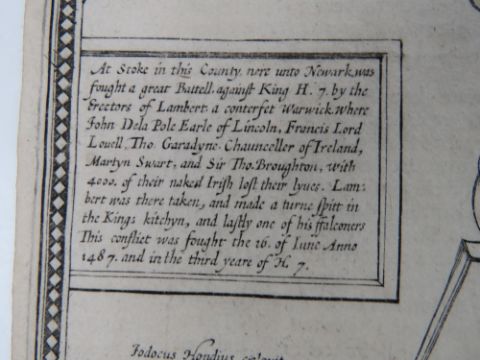 At Stoke in this County, nere unto Newark, was
fought a great Battell, against King H. 7. by the
Erectors of Lambert a conterfet Warwick. Where
John Dela Pole Earle of Lincoln, Francis Lord
Lovell, Tho. Garadyne Chaunceller of Ireland,
Martyn Swart, and Sir Tho. Broughton, with
4000. of their naked Irish lost their lyues. Lam:
bert was there taken, and made a turne spitt in
the Kings kitchyn, and lastly one of his ffalconers
This conflict was fought the 16. of Iune Anno
1487. and in the third yeare of H. 7.
Jodocus Hondius